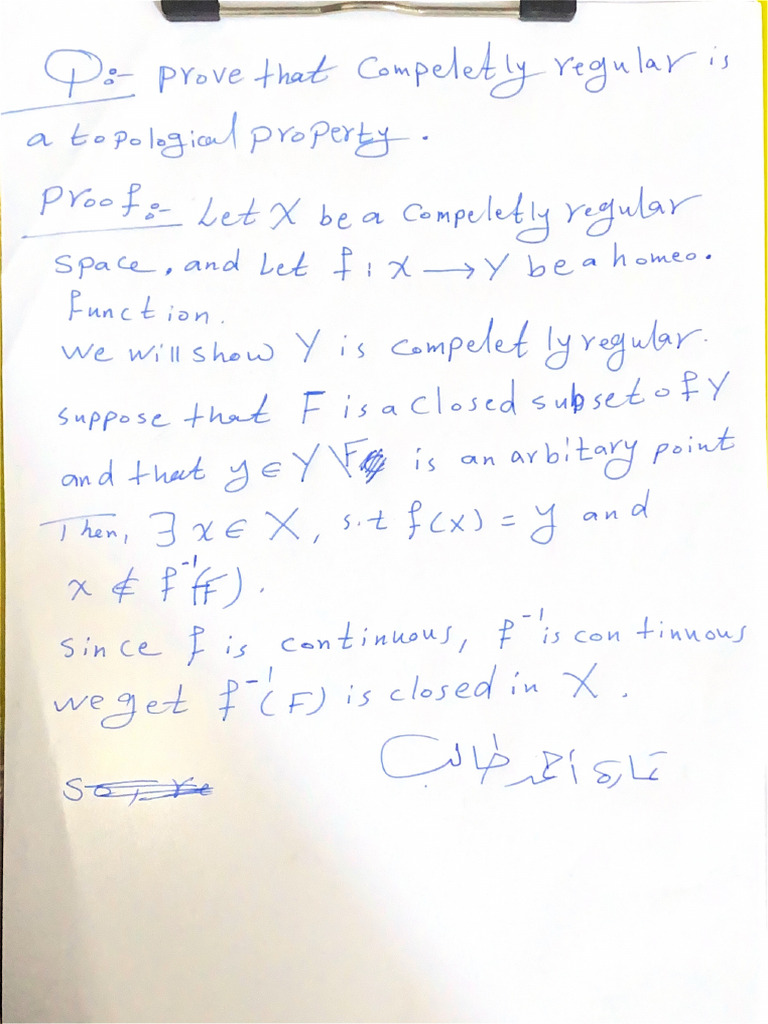 Q:- prove that Compeletly regular is
a topological property.
Proof:- Let X be a Compeletly regular
space, and Let f : X → Y be a homeo.
function.
We will show Y is compeletly regular.
suppose that F is a closed subset of Y
and that y ∈ Y \ F is an arbitary point
Then, ∃ x ∈ X, s.t f(x) = y and
x ∉ f⁻¹(F).
since f is continuous, f⁻¹ is continuous
we get f⁻¹(F) is closed in X.
احمد طالب
So,